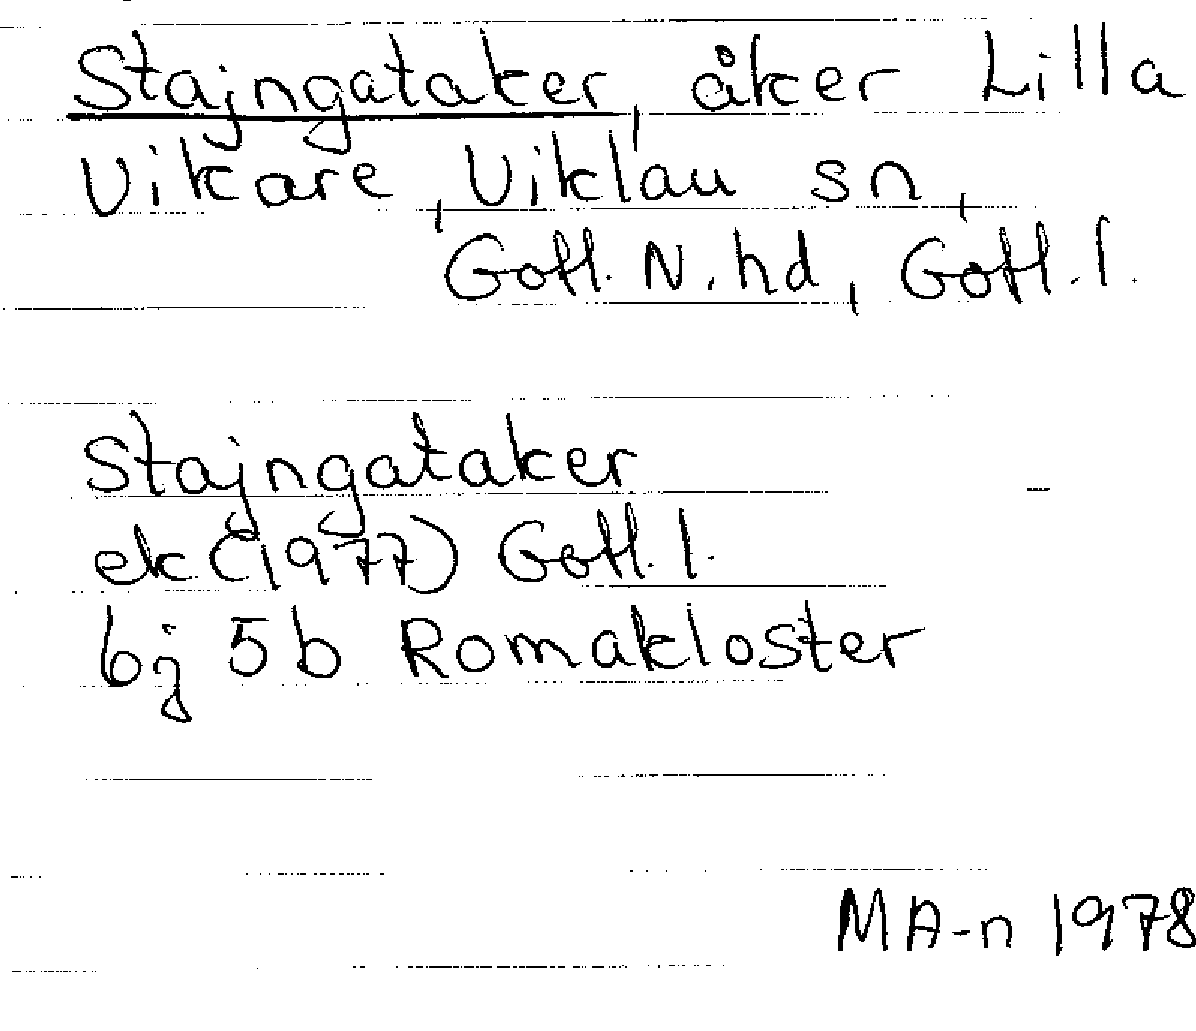 Stajngataker, åker Lilla
Vikare, Viklau sn,
Gotl. N. hd, Gotl. l.
Stajngataker
ek (1977) Gotl. l.
bj 5b Romakloster
MA-n 1978